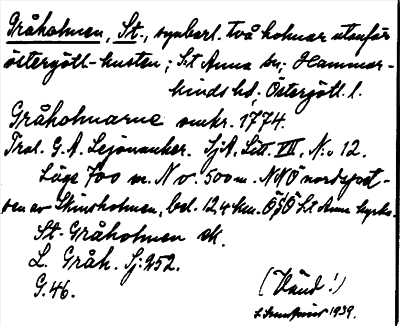 Gråholmen, St., synbarl. två holmar utanför
östergötl-kusten; S:t Anna sn; Hammar-
kinds hd, Östergötl. l.
Gråholmarne omkr. 1774.
Tral. G. A. Lejonanker. SjA. Litt. VII. N:o 12.
Läge 700 m. N o. 500 m. NNÖ nordspet-
sen av Skinsholmen, bel. 12,4 km. ÖSÖ S:t Anna kyrka.
St. Gråholmen ek.
L. Gråh. Sj: 252.
G. 46.
(Vänd!)
1939.